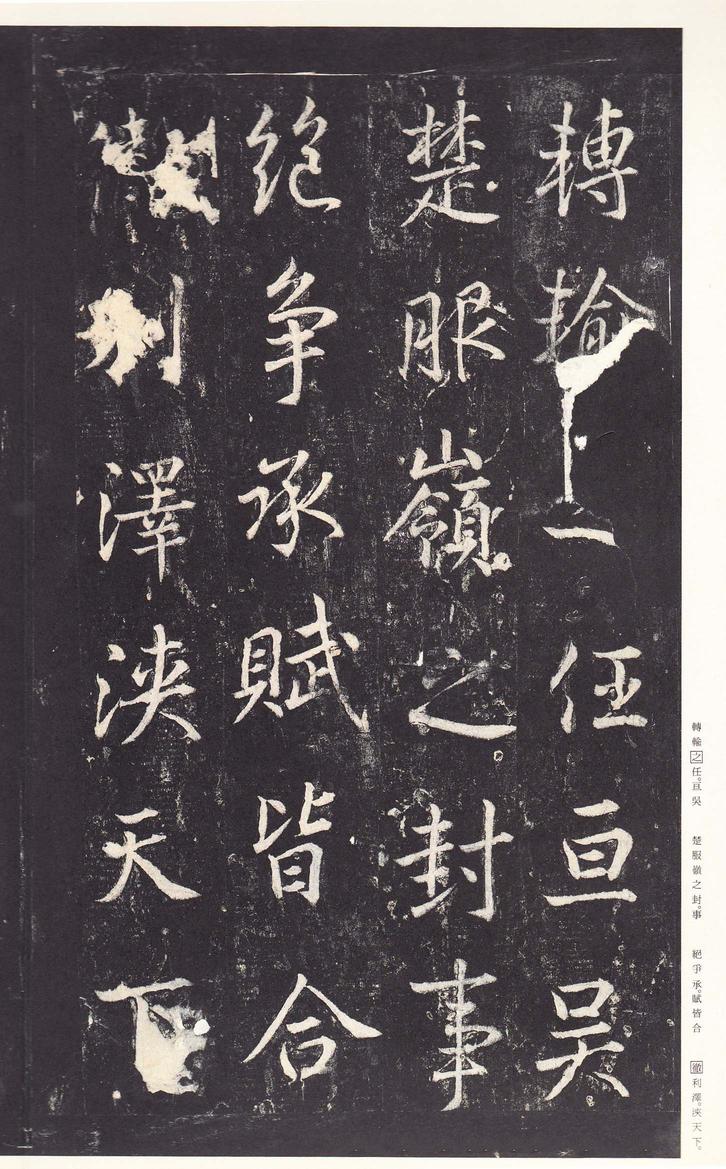 轉輸任亘吳
楚服嶺之封事
絕争承賦皆合
利澤浹天下
轉輸之任。亘吳　楚服嶺之封。事　絕爭承。賦皆合　徹利澤。浹天下。